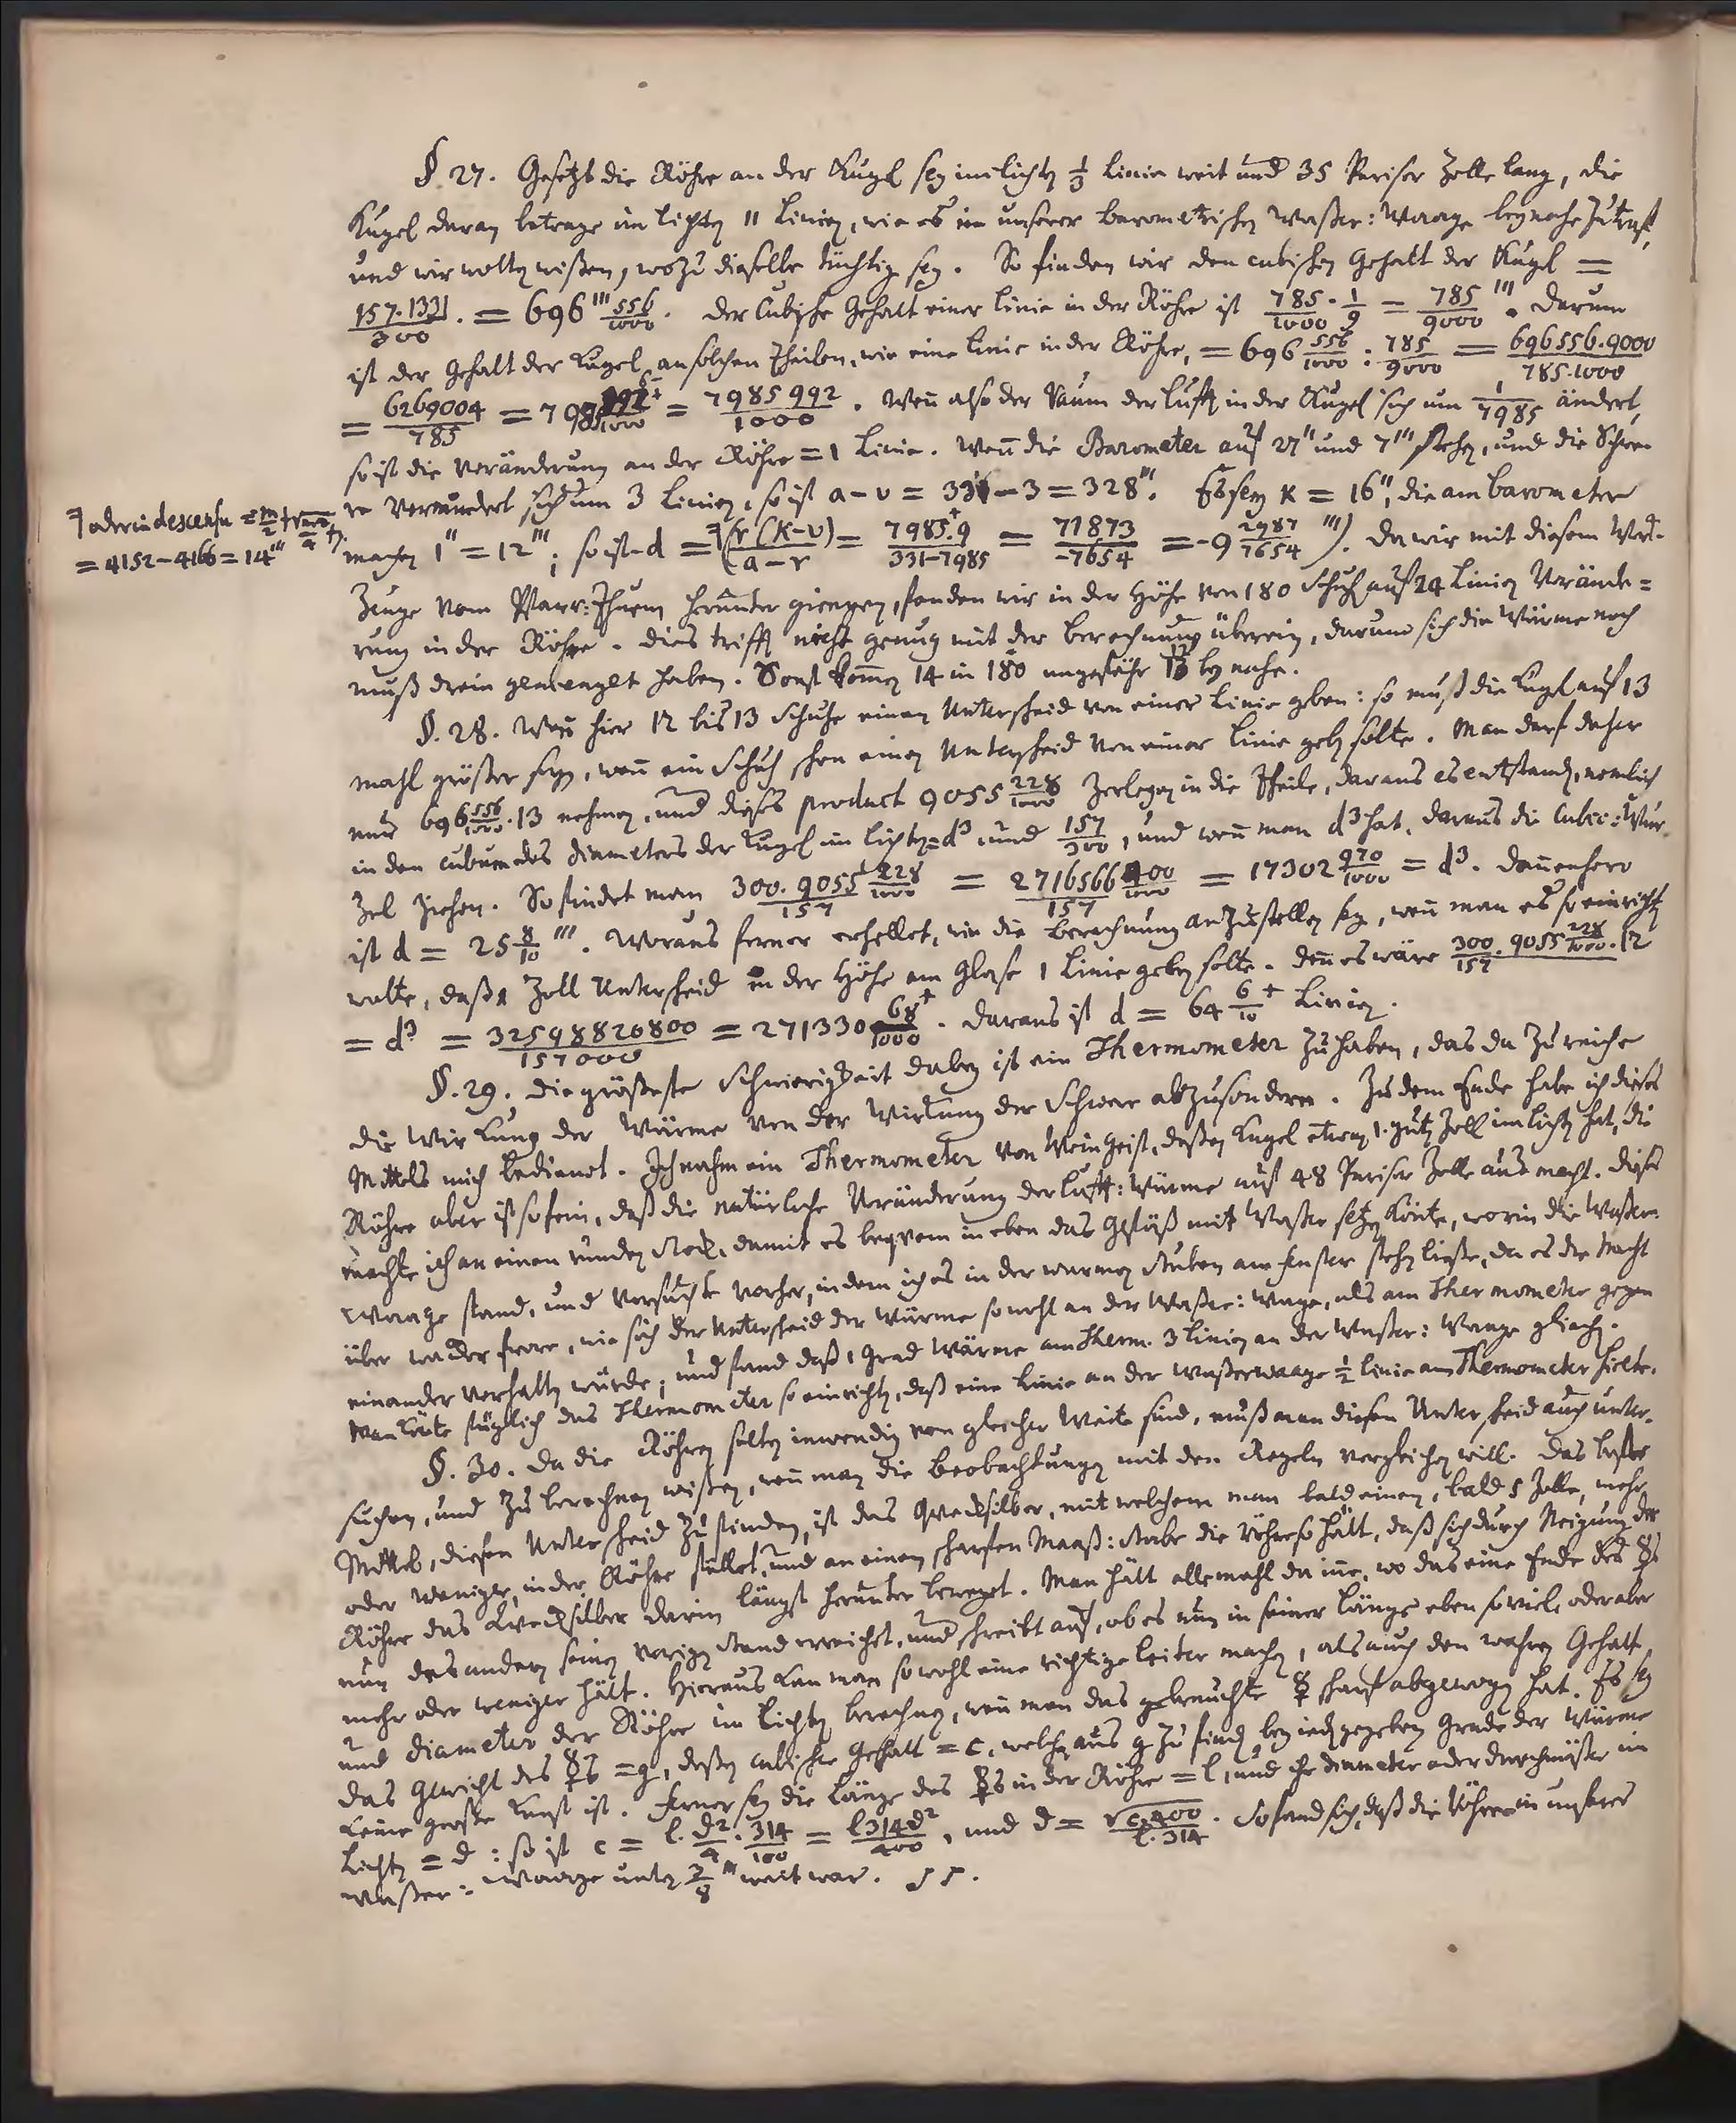 §. 27. Gesetzt die Röhre an der Kugel sey im lichten 1/3 Linie weit und 35 Pariser Zolle lang, die
Kugel daran betrage im lichten 11 Linien, wie es in unserer barometrischen Waßer: Waage beynahe zutrifft,
und wir wolten wißen, wozu dieselbe tüchtig sey. So finden wir den cubischen Gehalt der Kugel =
157.1331/300 = 696''' 556/1000. Der Cubische Gehalt einer Linie in der Röhre ist 785/1000 · 1/9 = 785/9000 '''. Darum
ist der Gehalt der Kugel an solchen Theilen, wie eine Linie in der Röhre, = 696 556/1000 : 785/9000 = 696556.9000/785.1000
= 6269004/785 = 7985 992/1000 = 7985992/1000. Wen also der Raum der Lufft in der Kugel sich um 1/7985 ändert,
so ist die Veränderung an der Röhre = 1 Linie. Wen die Barometer auf 27'' und 7''' stehen, und die Schwe-
re vermindert sich um 3 Linien, so ist a - v = 331 - 3 = 328'''. Es sey k = 16'', die am barometer
⁊ oder in descensu = m/2 +
= 4152 - 4166 = 14'''
machen 1'' = 12'''; so ist d = r(k-v)/a-r = 7985.9/331-7985 = 71873/-7654 = -9 2987/7654 '''). Da wir mit diesem Werck-
zeuge vom Pfarr: Thurm herunter giengen, fanden wir in der Höhe von 180 Schuh auf 24 Linien Verände=
rung in der Röhre. Dies trifft nicht genug mit der berechnung überein, darum sich die Wärme noch
muß drein gemenget haben. Sonst komen 14 in 180 ungefähr 13 bey nahe.
§. 28. Wen hier 12 bis 13 Schuhe einen Unterscheid von einer Linie geben: so muß die Kugel auf 13
mahl größer seyn, wen ein Schuh schon einen Unterscheid von einer Linie geben solte. Man darf daher
nur 696 556/1000 · 13 nehmen, und dieses product 9055 228/1000 zerlegen in die Theile, daraus es entstanden, nemlich
in den cubum des diameters der Kugel im lichten = d³ und 157/300, und wen man d³ hat, daraus die Cubic: Wur-
zel ziehen. So findet man 300. 9055 228/1000 / 157 = 2716566 400/1000 / 157 = 17302 970/1000 = d³. Dannenhero
ist d = 25 8/10 '''. Woraus ferner erhellet, wie die Berechnung anzustellen sey, wen man es so einrichten
wolte, daß 1 Zoll Unterscheid in der Höhe am Glase 1 Linie geben solte. Den es wäre 300. 9055 228/1000 . 12 / 157
= d³ = 32598820800/157000 = 271330 68/1000 +. Daraus ist d = 64 6/10 + Linien.
§. 29. Die größeste Schwierigkeit dabey ist ein Thermometer zu haben, das da zureiche
die Wirkung der Wärme von der Wirkung der Schwere abzusondern. Zu dem Ende habe ich dieses
Mittels mich bedienet. Ich nahm ein Thermometer von Weingeist, deßen Kugel etwan 1. guten Zoll im lichten hat, die
Röhre aber ist so fein, daß die natürliche Veränderung der Lufft: Wärme auf 48 Pariser Zolle aus macht. Dieses
machte ich an einen runden Stock, damit es beqvem in eben das Gefäß mit Waßer setzen könte, worin die Waßer-
Waage stand, und versuchte vorher, indem ich es in der warmen Stuben am fenster stehen ließe, da es die Nacht
über wieder frore, wie sich der Unterscheid der Wärme sowohl an der Waßer: Wage, als am Thermometer gegen
einander verhalten würde; und fand daß 1 Grad Wärme am Therm. 3 Linien an der Waßer: Waage gleichen.
Man könte füglich das Thermometer so einrichten, daß eine Linie an der Waßerwaage 1/2 Linie am Thermometer hielte.
§. 30. Da die Röhren selten inwendig von gleicher Weite sind, muß man diesen Unterscheid auch unter-
suchen, und zu berechnen wißen, wen man die Beobachtungen mit den Regeln vergleichen will. Das beste
Mittel, diesen Unterscheid zu finden, ist das Qvecksilber, mit welchem man bald einen, bald 5 Zolle, mehr
oder weniger, in der Röhre füllet, und an einem scharfen Maaß: Stabe die Röhre so hält, daß sich durch Neigung der
Röhre das Qvecksilber darin längst herunter beweget. Man hält allemahl da inne, wo das eine Ende des ☿s
nun des andern seinen vorigen Stand erreichet, und schreibt auf, ob es nun in seiner Länge eben so viele oder aber
mehr oder weniger hält. Hieraus kan man so wohl eine richtige leiter machen, als auch den wahren Gehalt
und diameter der Röhre im lichten berechnen, wen man das gebrauchte ☿ scharf abgewogen hat. Es sey
das Gewicht des ☿s = g, deßen cubischer Gehalt = c, welchen aus g zu finden bey ieden gegebenen Grade der Wärme
keine große Kunst ist. Ferner sey die Länge des ☿s in der Röhre = l, und ihr diameter oder durchmeßer im
lichten = d: so ist c = l. d²/4 . 314/100 = l 314 d²/400, und d = √c.400/l.314. So fand sich, daß die Röhre in unserer
Waßer: Waage unten 3/8 ''' weit war.